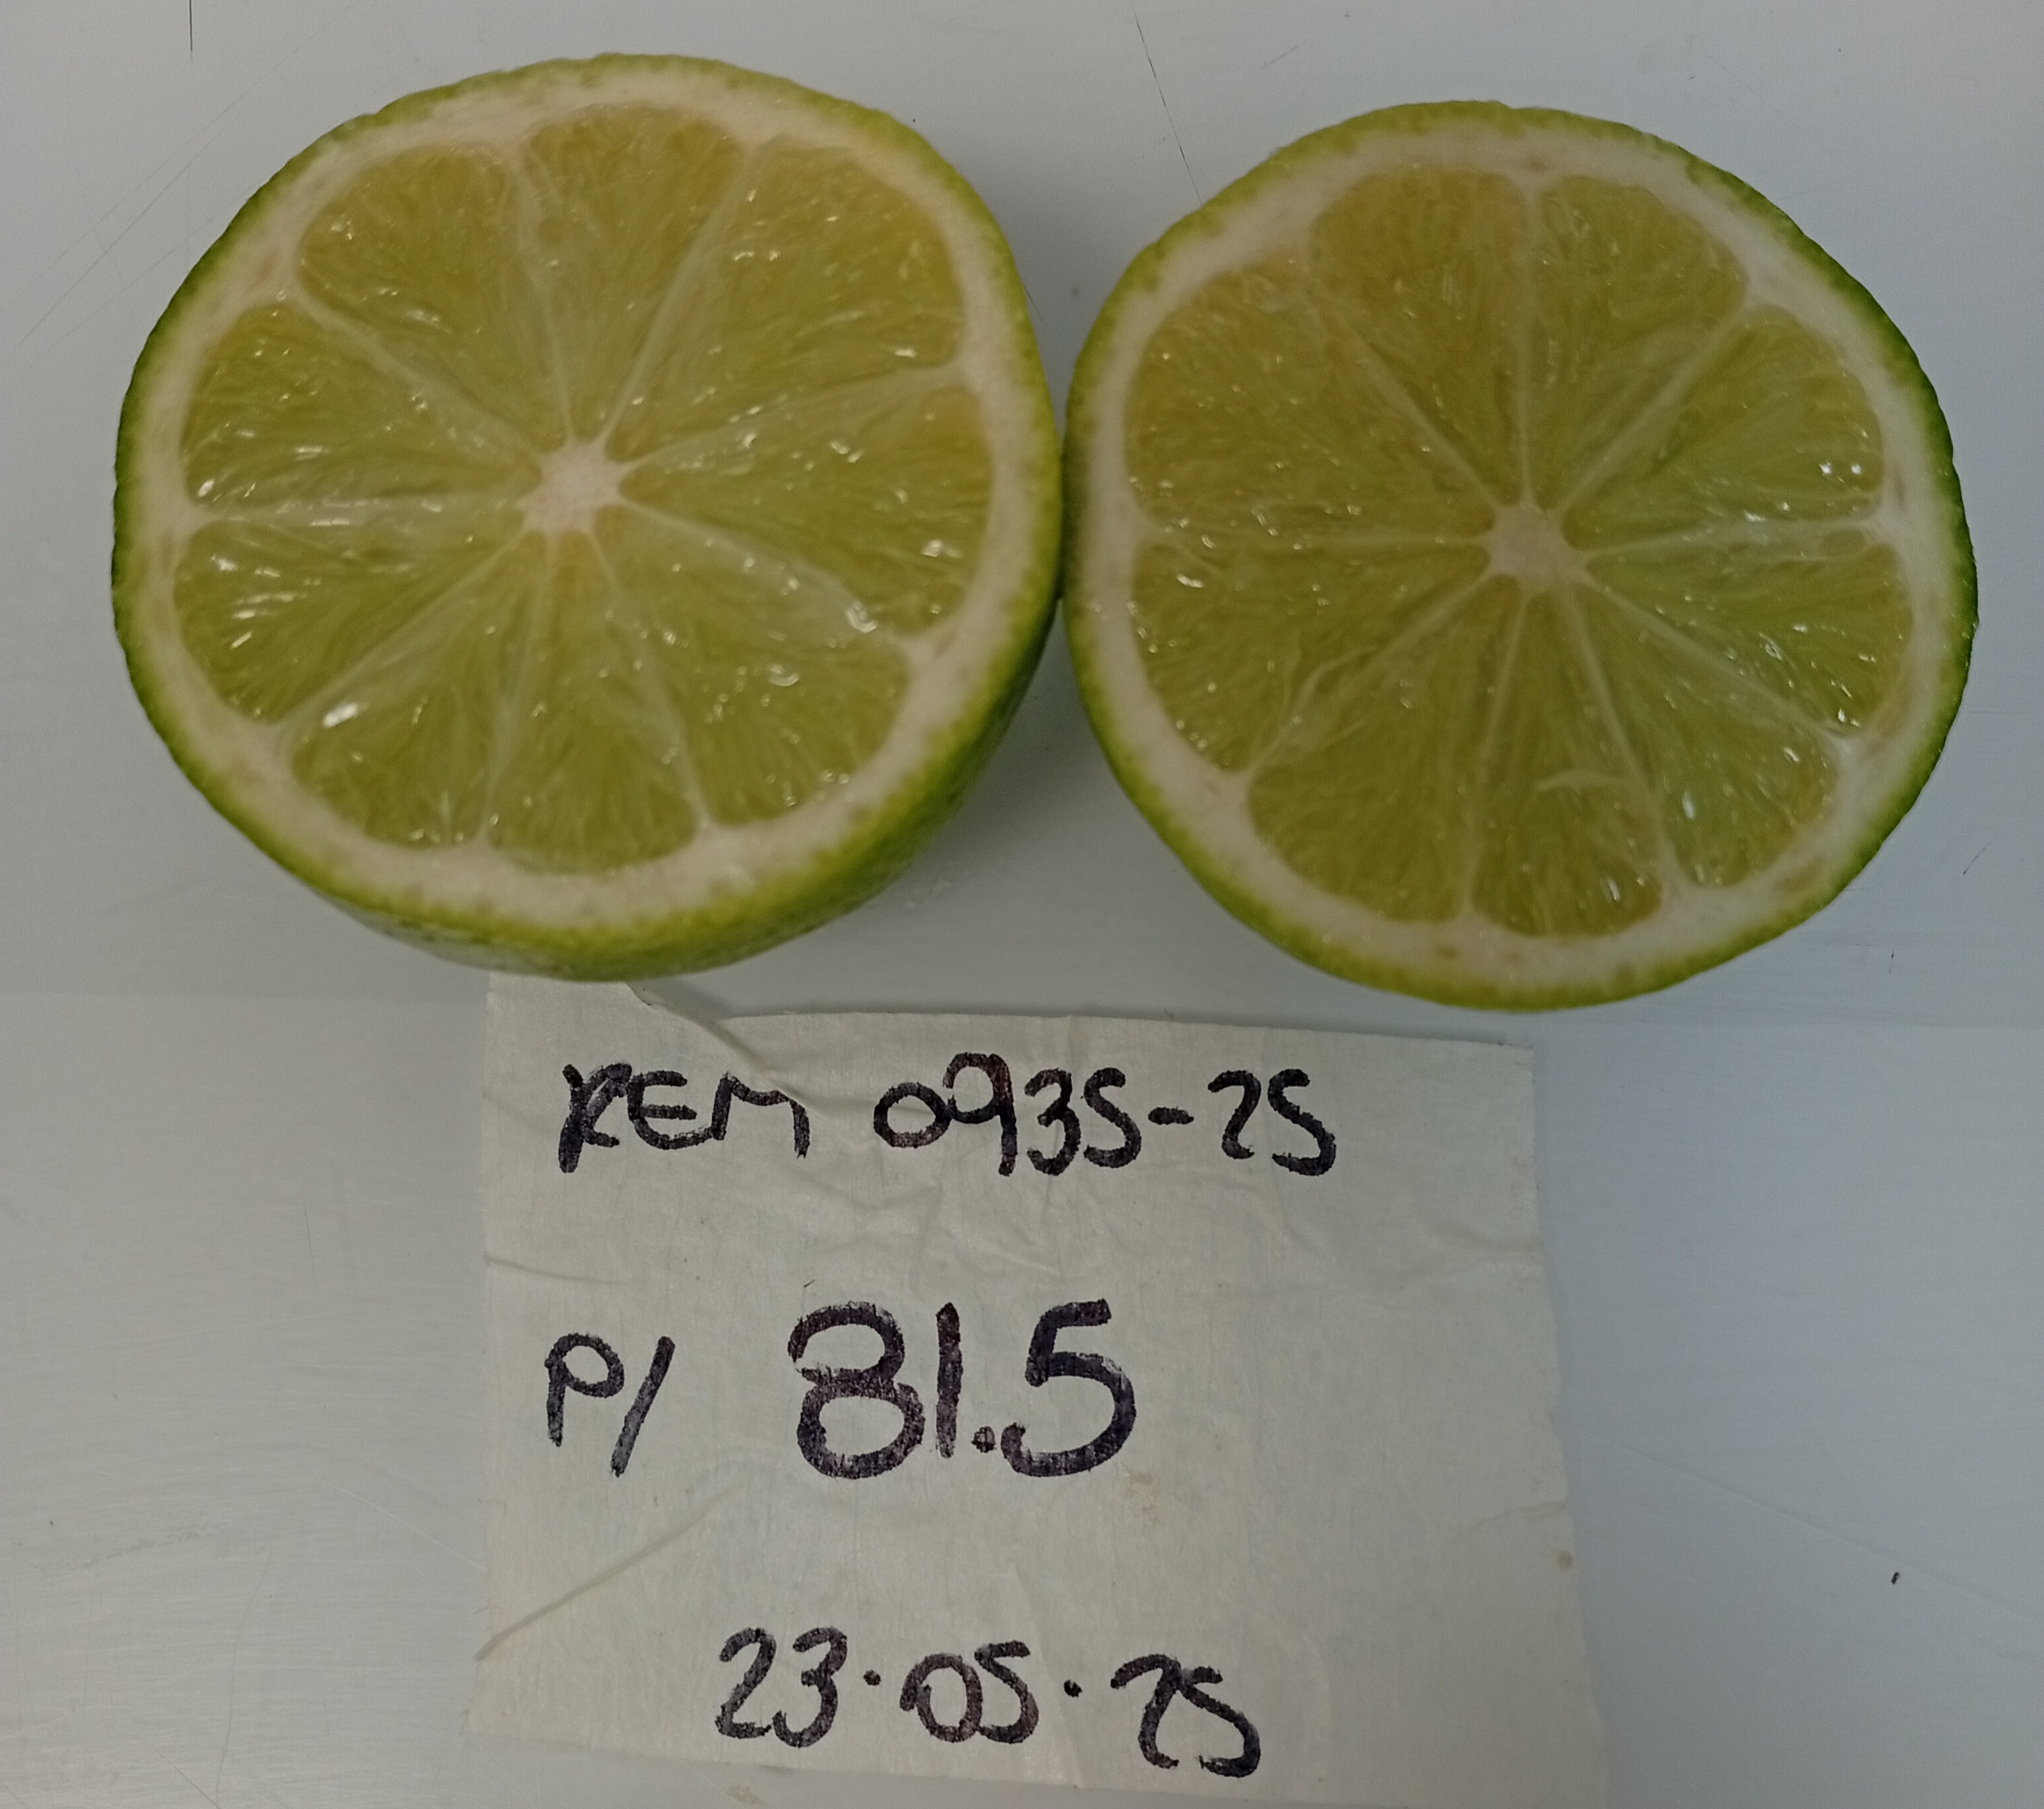 REM 0935-25
P/ 81.5
23.05.25